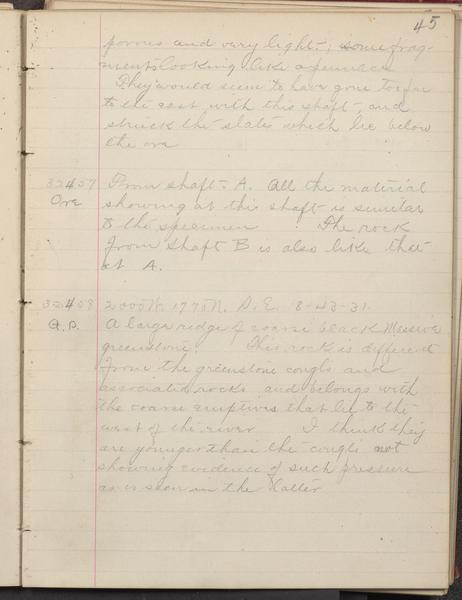 45
porous and very light, some frag-
ments looking like a pumice
They would seem to have gone too far
to the east with this shaft, and
struck the slate which lie below
the ore
32457 From shaft A. All the material
Ore showing at this shaft is similar
to the specimen. The rock
from Shaft B is also like that
at A.
32408 2000 N. 1770 W. S.E. 8-43-31.
A large ridge of coarse black Massive
greenstone. This rock is different
from the greenstone congls and
associated rocks and belongs with
the coarse eruptives that lie to the
west of the river I think they
are younger than the congls not
showing evidence of such pressure
as is seen in the latter